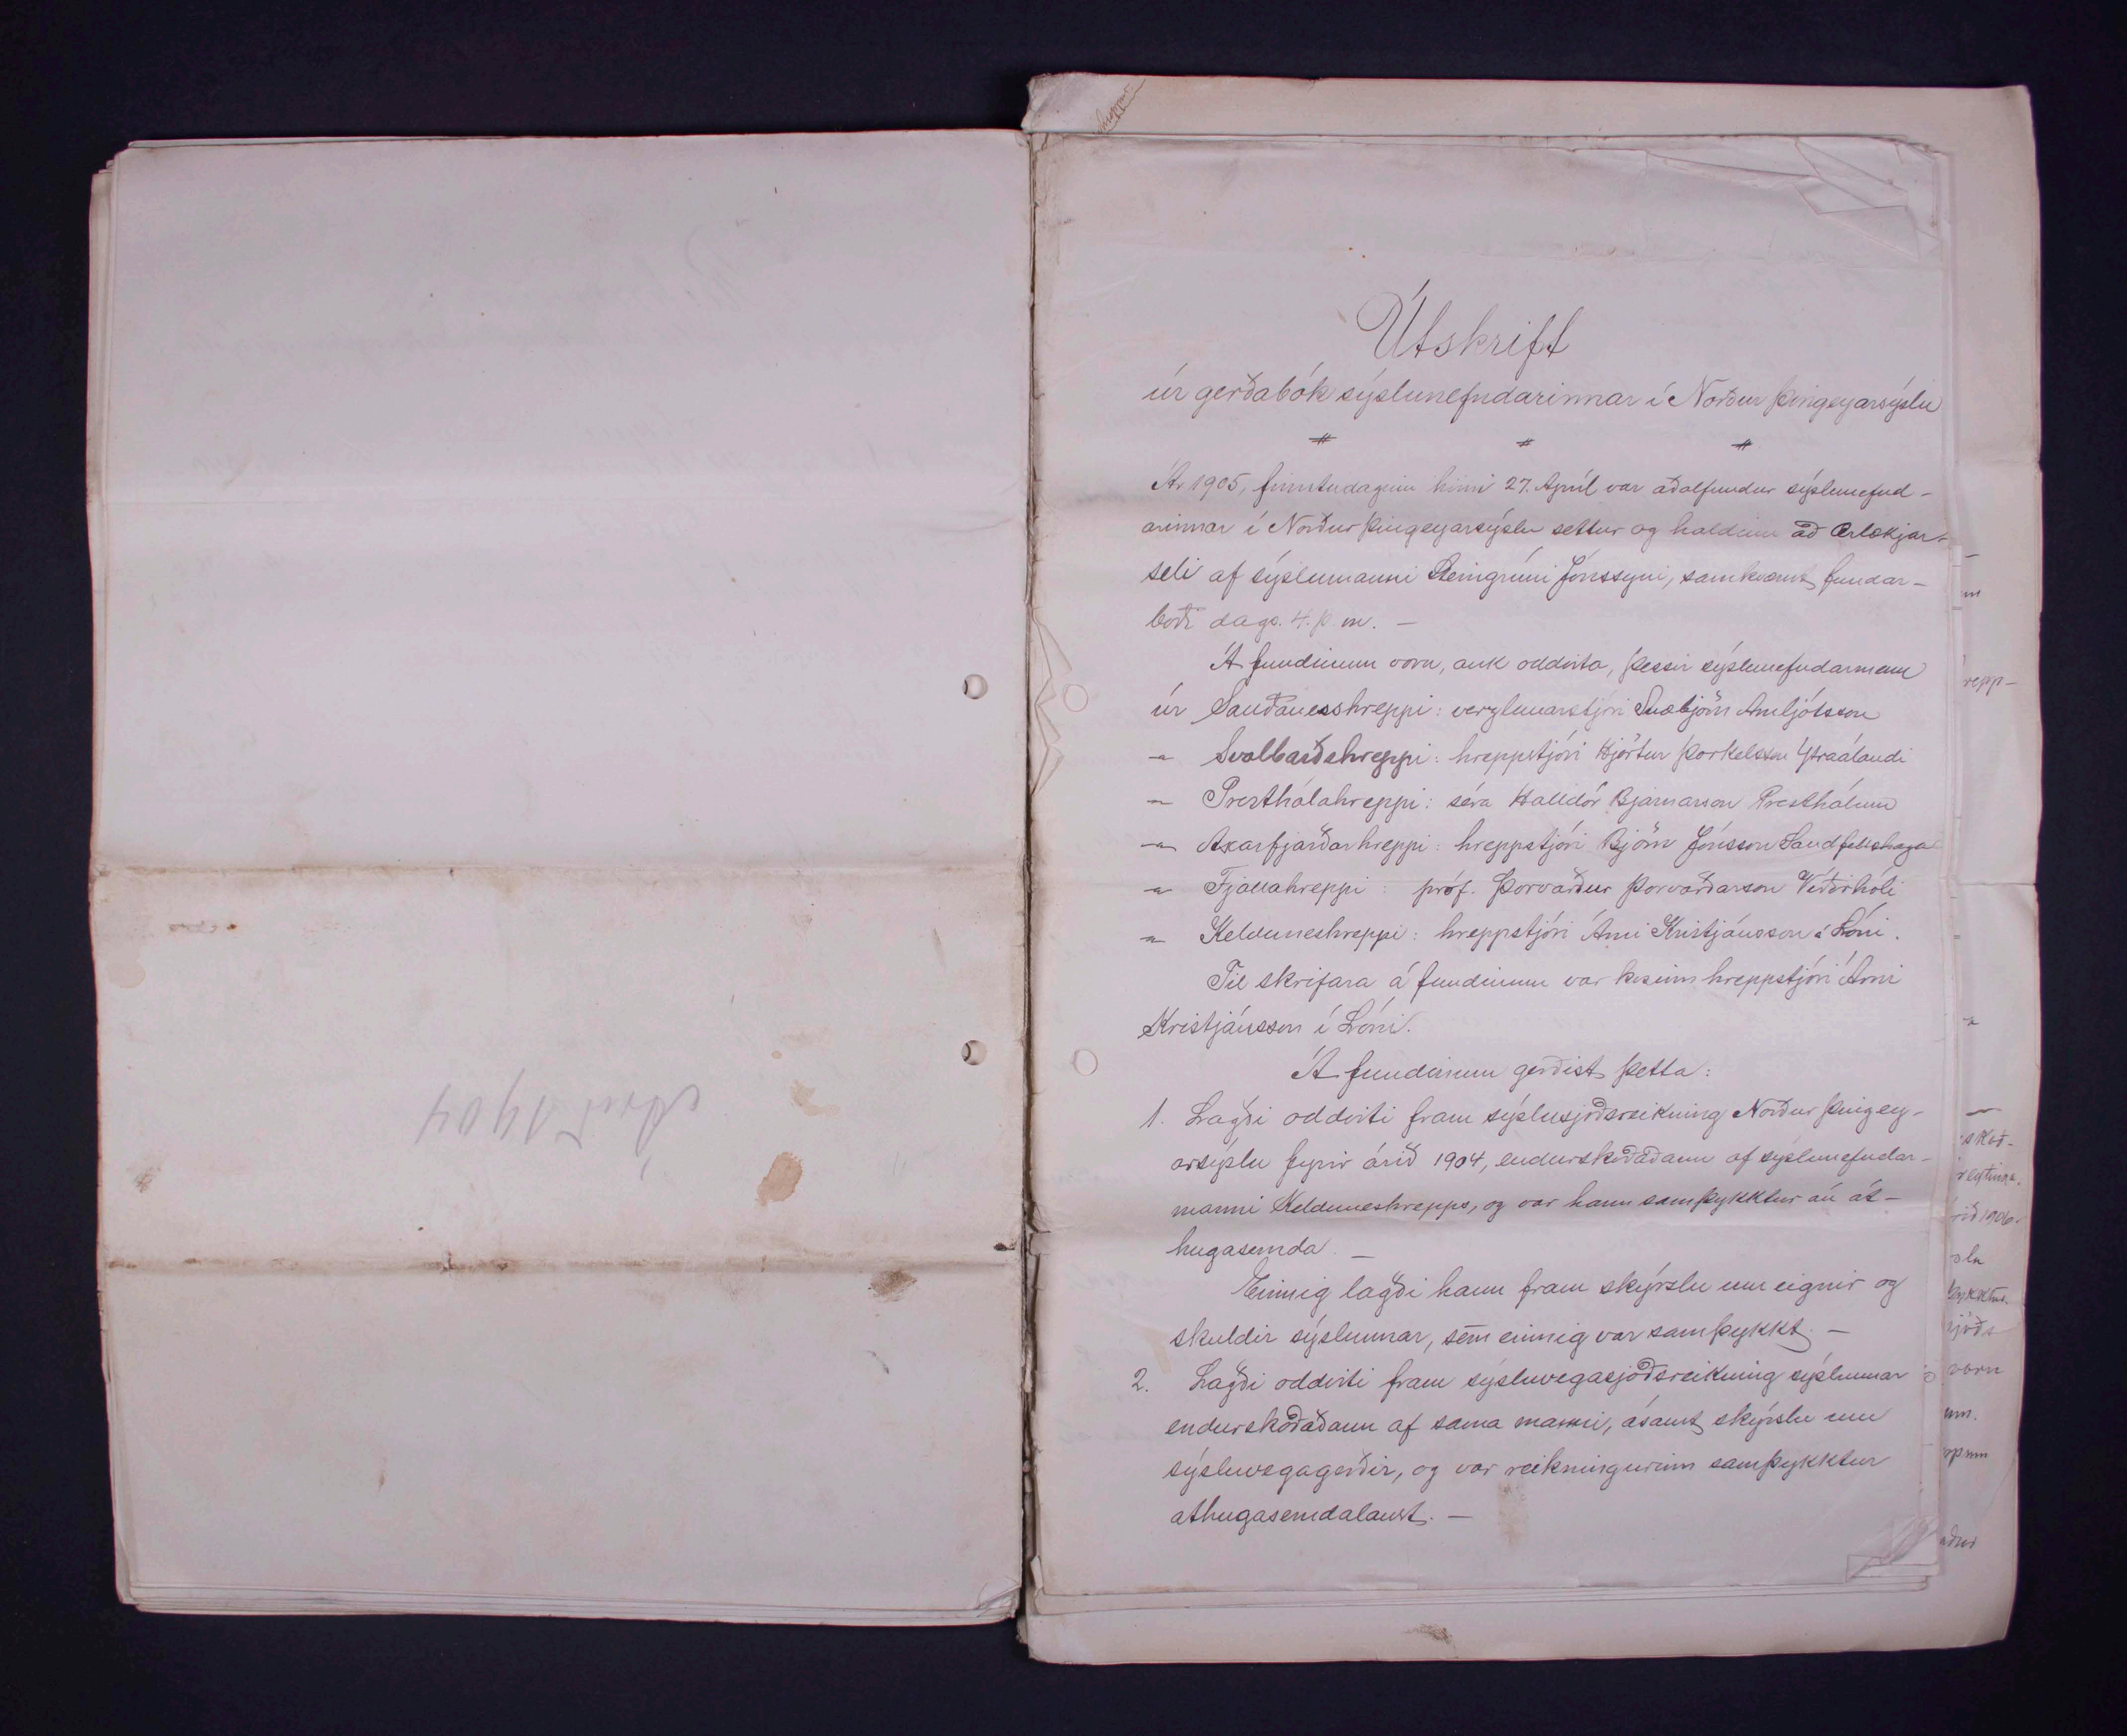 Árið 1904
Útskrift
úr gerðabók sýslunefndarinnar í Norður Þingeyarsýslu
Ár 1905, fimtudaginn hinn 27. Apríl var aðalfundur sýslunefnd-
arinnar í Norður Þingeyarsýslu settur og haldinn að Ærlækjar-
seli af sýslumanni Steingrími Jónssyni, samkvæmt fundar-
boði dags. 4. þ. m. —
Á fundinum voru, auk oddvita, þessir sýslunefndarmenn
úr Sauðanesshreppi: verzlunarstjóri Snæbjörn Arnljótsson
— Svalbarðshreppi: hreppstjóri Hjörtur Þorkelsson Ytraálandi
— Presthólahreppi: séra Halldór Bjarnarson Presthólum
— Axarfjarðarhreppi: hreppstjóri Björn Jónsson Sandfellshaga
— Fjallahreppi: próf. Þorvarður Þorvarðarson Víðirhóli
— Kelduneshreppi: hreppstjóri Árni Kristjánsson í Lóni.
Til skrifara á fundinum var kosinn hreppstjóri Árni
Kristjánsson í Lóni.
Á fundinum gerðist þetta:
1. Lagði oddviti fram sýslusjóðsreikning Norður Þingey-
arsýslu fyrir árið 1904, endurskoðaðann af sýslunefndar-
manni Kelduneshrepps, og var hann samþykktur án at-
hugasemda. —
Einnig lagði hann fram skýrslu um eignir og
skuldir sýslunnar, sem einnig var samþykkt. —
2. Lagði oddviti fram sýsluvegasjóðsreikning sýslunnar
endurskoðaðann af sama manni, ásamt skýrslu um
sýsluvegagerðir, og var reikningurinn samþykktur
athugasemdalaust. —